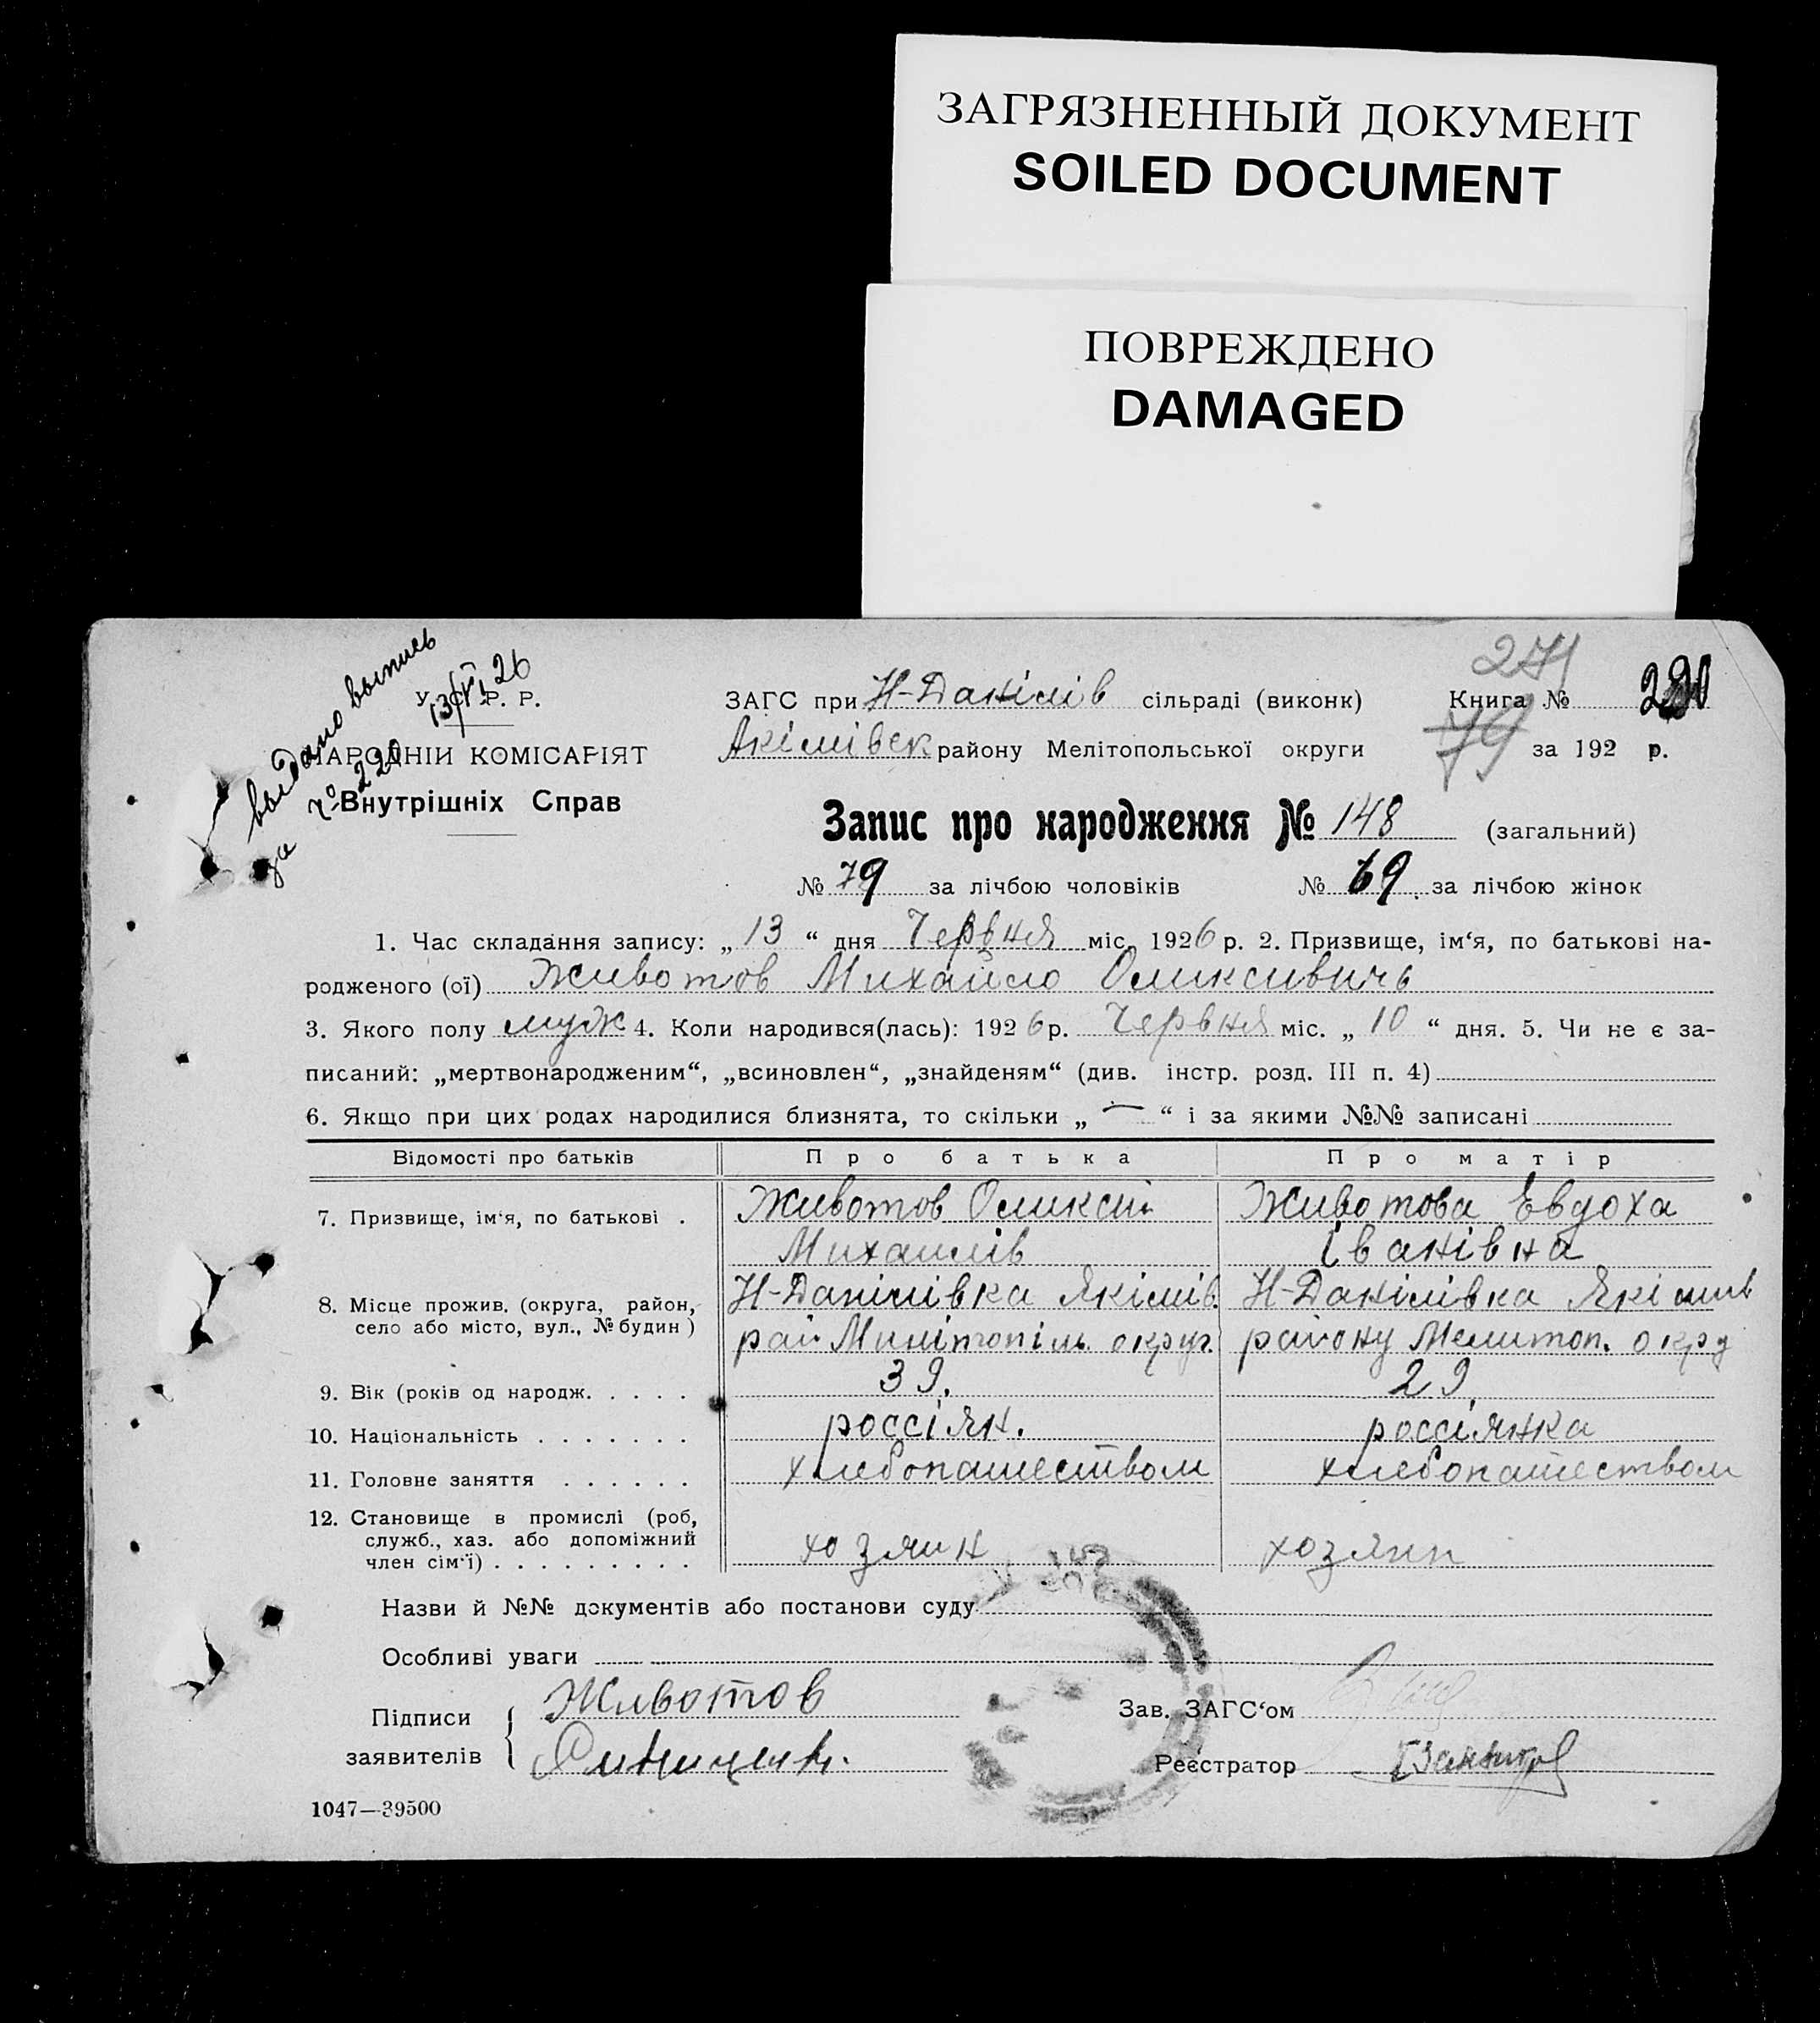 ЗАГРЯЗНЕННЫЙ ДОКУМЕНТ
SOILED DOCUMENT
ПОВРЕЖДЕНО
DAMAGED
выдано выпись
за № 220
13/VI 26
У. С. Р. Р.
НАРОДНІЙ КОМІСАРІЯТ
Внутрішніх Справ
271
79
ЗАГС при Н-Данілів сільраді (виконк) Книга №
Акімівск району Мелітопольської округи за 192 р.
Запис про народження № 148 (загальний)
№ 79 за лічбою чоловіків № 69 за лічбою жінок
1. Час складання запису: „ 13 “ дня Червня міс. 1926 р. 2. Призвище, ім‘я, по батькові на-
родженого (ої) Животов Михайло Оликсивичь
3. Якого полу муж 4. Коли народився(лась): 1926 р. Червня міс. „ 10 “ дня. 5. Чи не є за-
писаний: „мертвонародженим“, „всиновлен“, „знайденям“ (див. інстр. розд. III п. 4)
6. Якщо при цих родах народилися близнята, то скільки „ — “ і за якими №№ записані
Відомості про батьків Про батька Про матір
7. Призвище, ім‘я, по батькові . Животов Оликсій Животова Евдоха
Михаилів Іванівна
8. Місце прожив. (округа, район, Н-Данілівка Якімів. Н-Данілівка Якімив
село або місто, вул., № будин ) рай Милітопіль округ. району Мелитоп. окру
9. Вік (років од народж. . . . . 39. 29.
10. Національність . . . . . . . россіян. россіянка
11. Головне заняття . . . . . . хлебопашеством хлебопашеством
12. Становище в промислі (роб,
служб., хаз. або допоміжний
член сім‘ї) . . . . . . . . . хозяин хозяин
Назви й №№ документів або постанови суду
Особливі уваги
Підписи Животов Зав. ЗАГС‘ом
заявителів Реєстратор
1047—39500